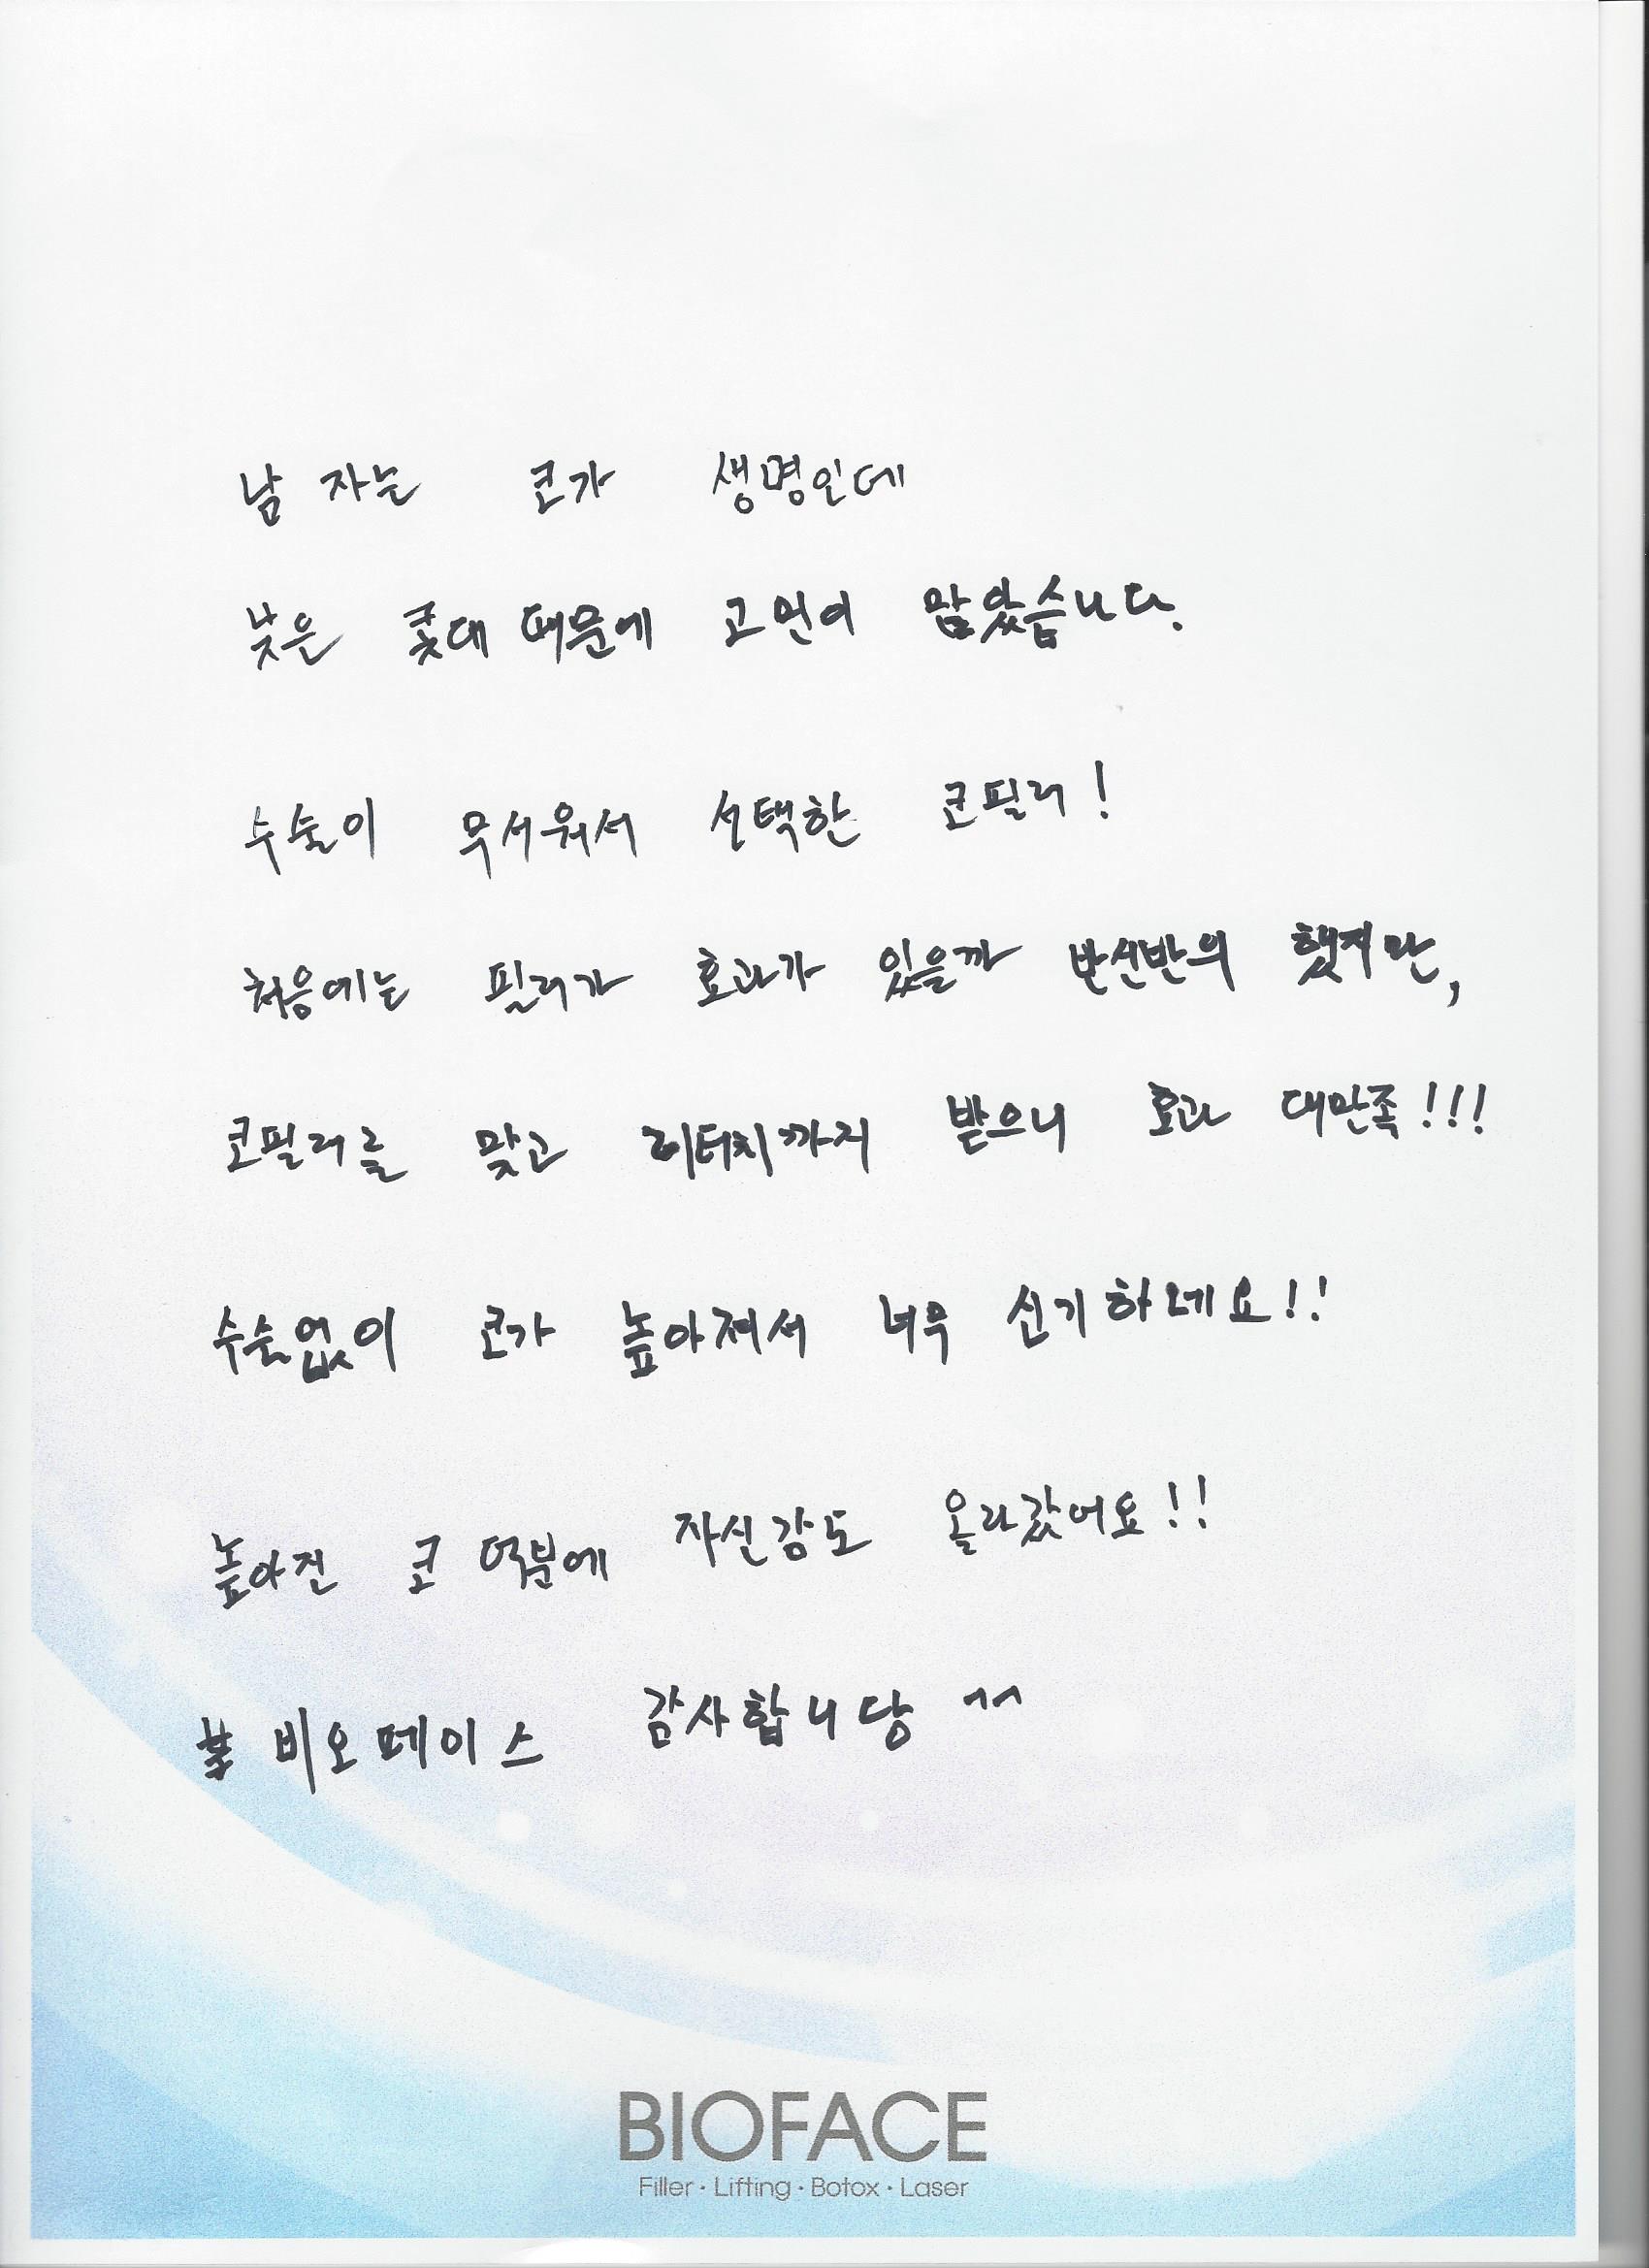 남자는 코가 생명인데
낮은 콧대 때문에 고민이 많았습니다.
수술이 무서워서 선택한 코필러!
처음에는 필러가 효과가 있을까 반신반의 했지만,
코필러를 맞고 리터치까지 받으니 효과 대만족!!!
수술없이 코가 높아져서 너무 신기하네요!!
높아진 코 덕분에 자신감도 올라갔어요!!
# 비오페이스 감사합니당 ^^
BIOFACE
Filler · Lifting · Botox · Laser